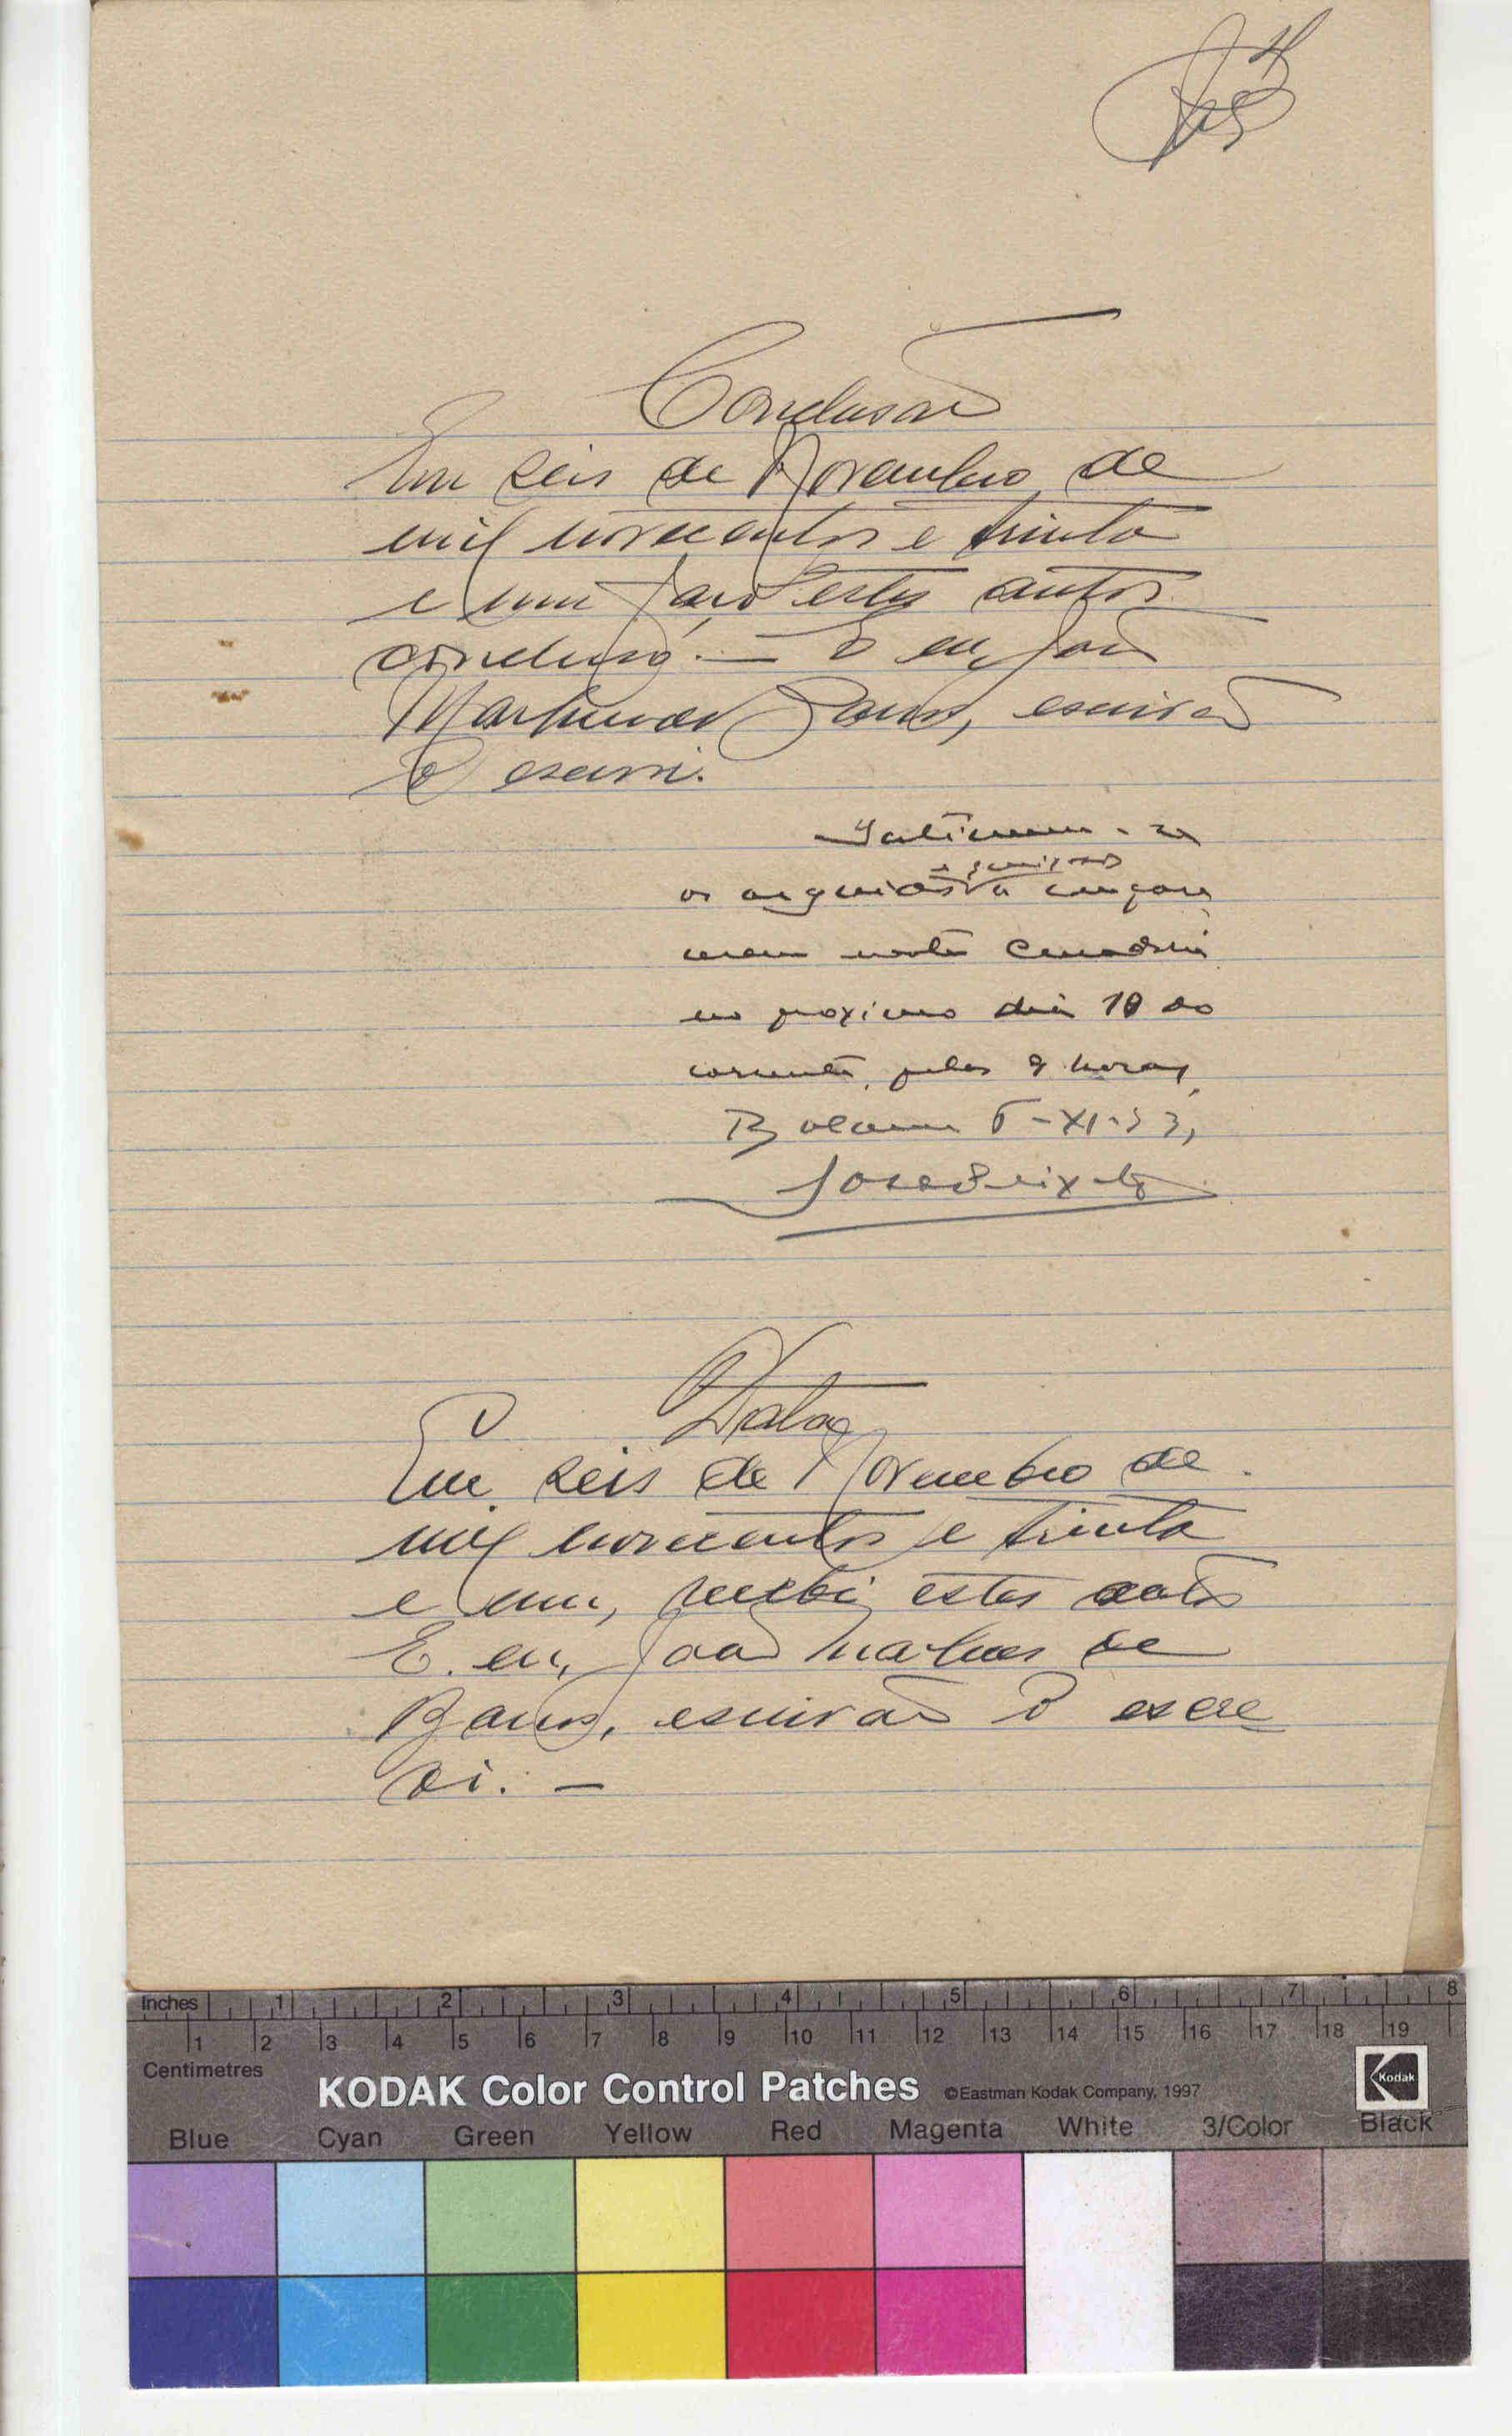 4
Conclusão
Em seis de Novembro de
mil novecentos e trinta
e um faço estes autos
conclusos. — E eu, João
de Barros, escrivão
o escrevi.
Intimem-se
os arguidos a compare
cerem neste
no proximo dia 10 do
corrente, pelas 9 horas,
Bolama 6-XI-31,
José Peixoto
Data
Em seis de Novembro de
mil novecentos e trinta
e um, recebi estes autos
E. eu, João de
Barros, escrivão o escre
vi. —
Inches 1 2 3 4 5 6 7 8
1 2 3 4 5 6 7 8 9 10 11 12 13 14 15 16 17 18 19
Centimetres
KODAK Color Control Patches ©Eastman Kodak Company, 1997 Kodak
Blue Cyan Green Yellow Red Magenta White 3/Color Black